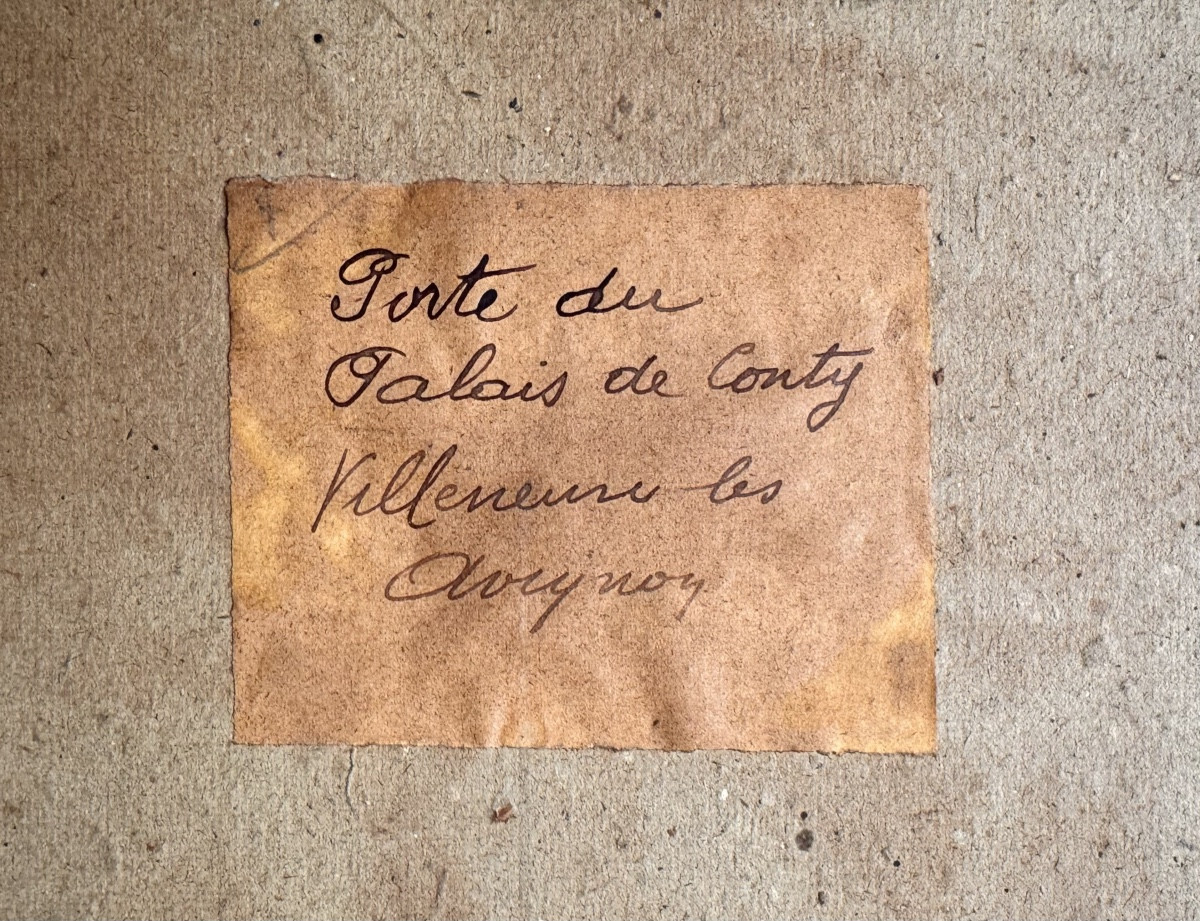 Porte du
Palais de Conty
Villeneuve les
Avignon